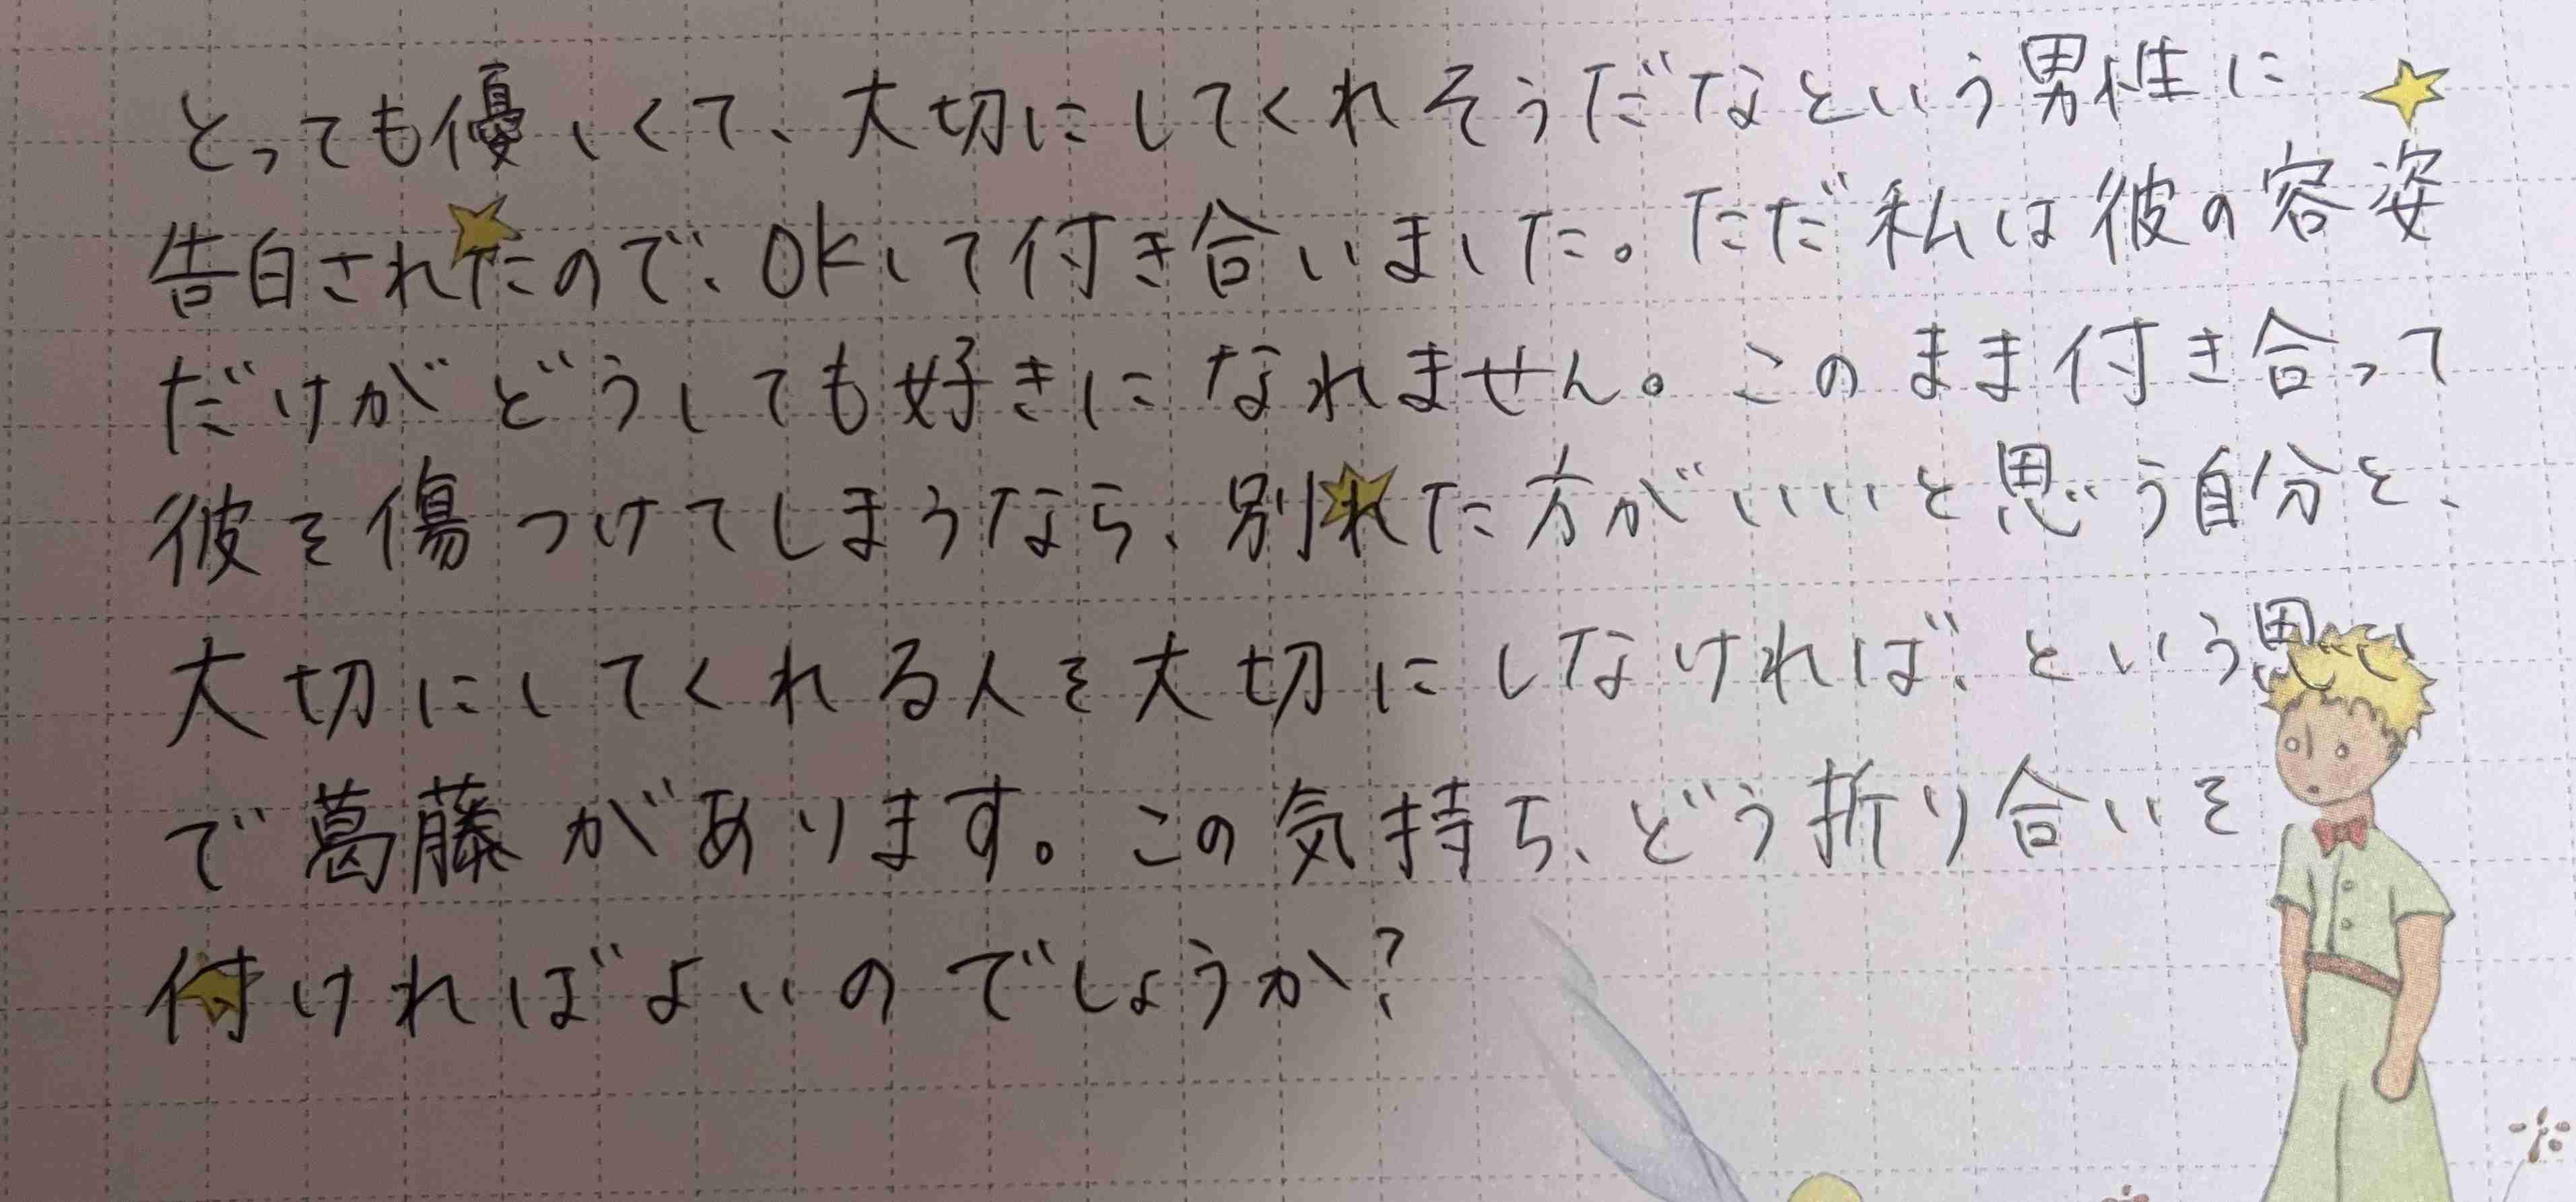 とっても優しくて、大切にしてくれそうだなという男性に
告白されたので、OKして付き合いました。ただ私は彼の容姿
だけがどうしても好きになれません。このまま付き合って
彼を傷つけてしまうなら、別れた方がいいと思う自分と、
大切にしてくれる人を大切にしなければ、という思い
で葛藤があります。この気持ち、どう折り合いを
付ければよいのでしょうか?